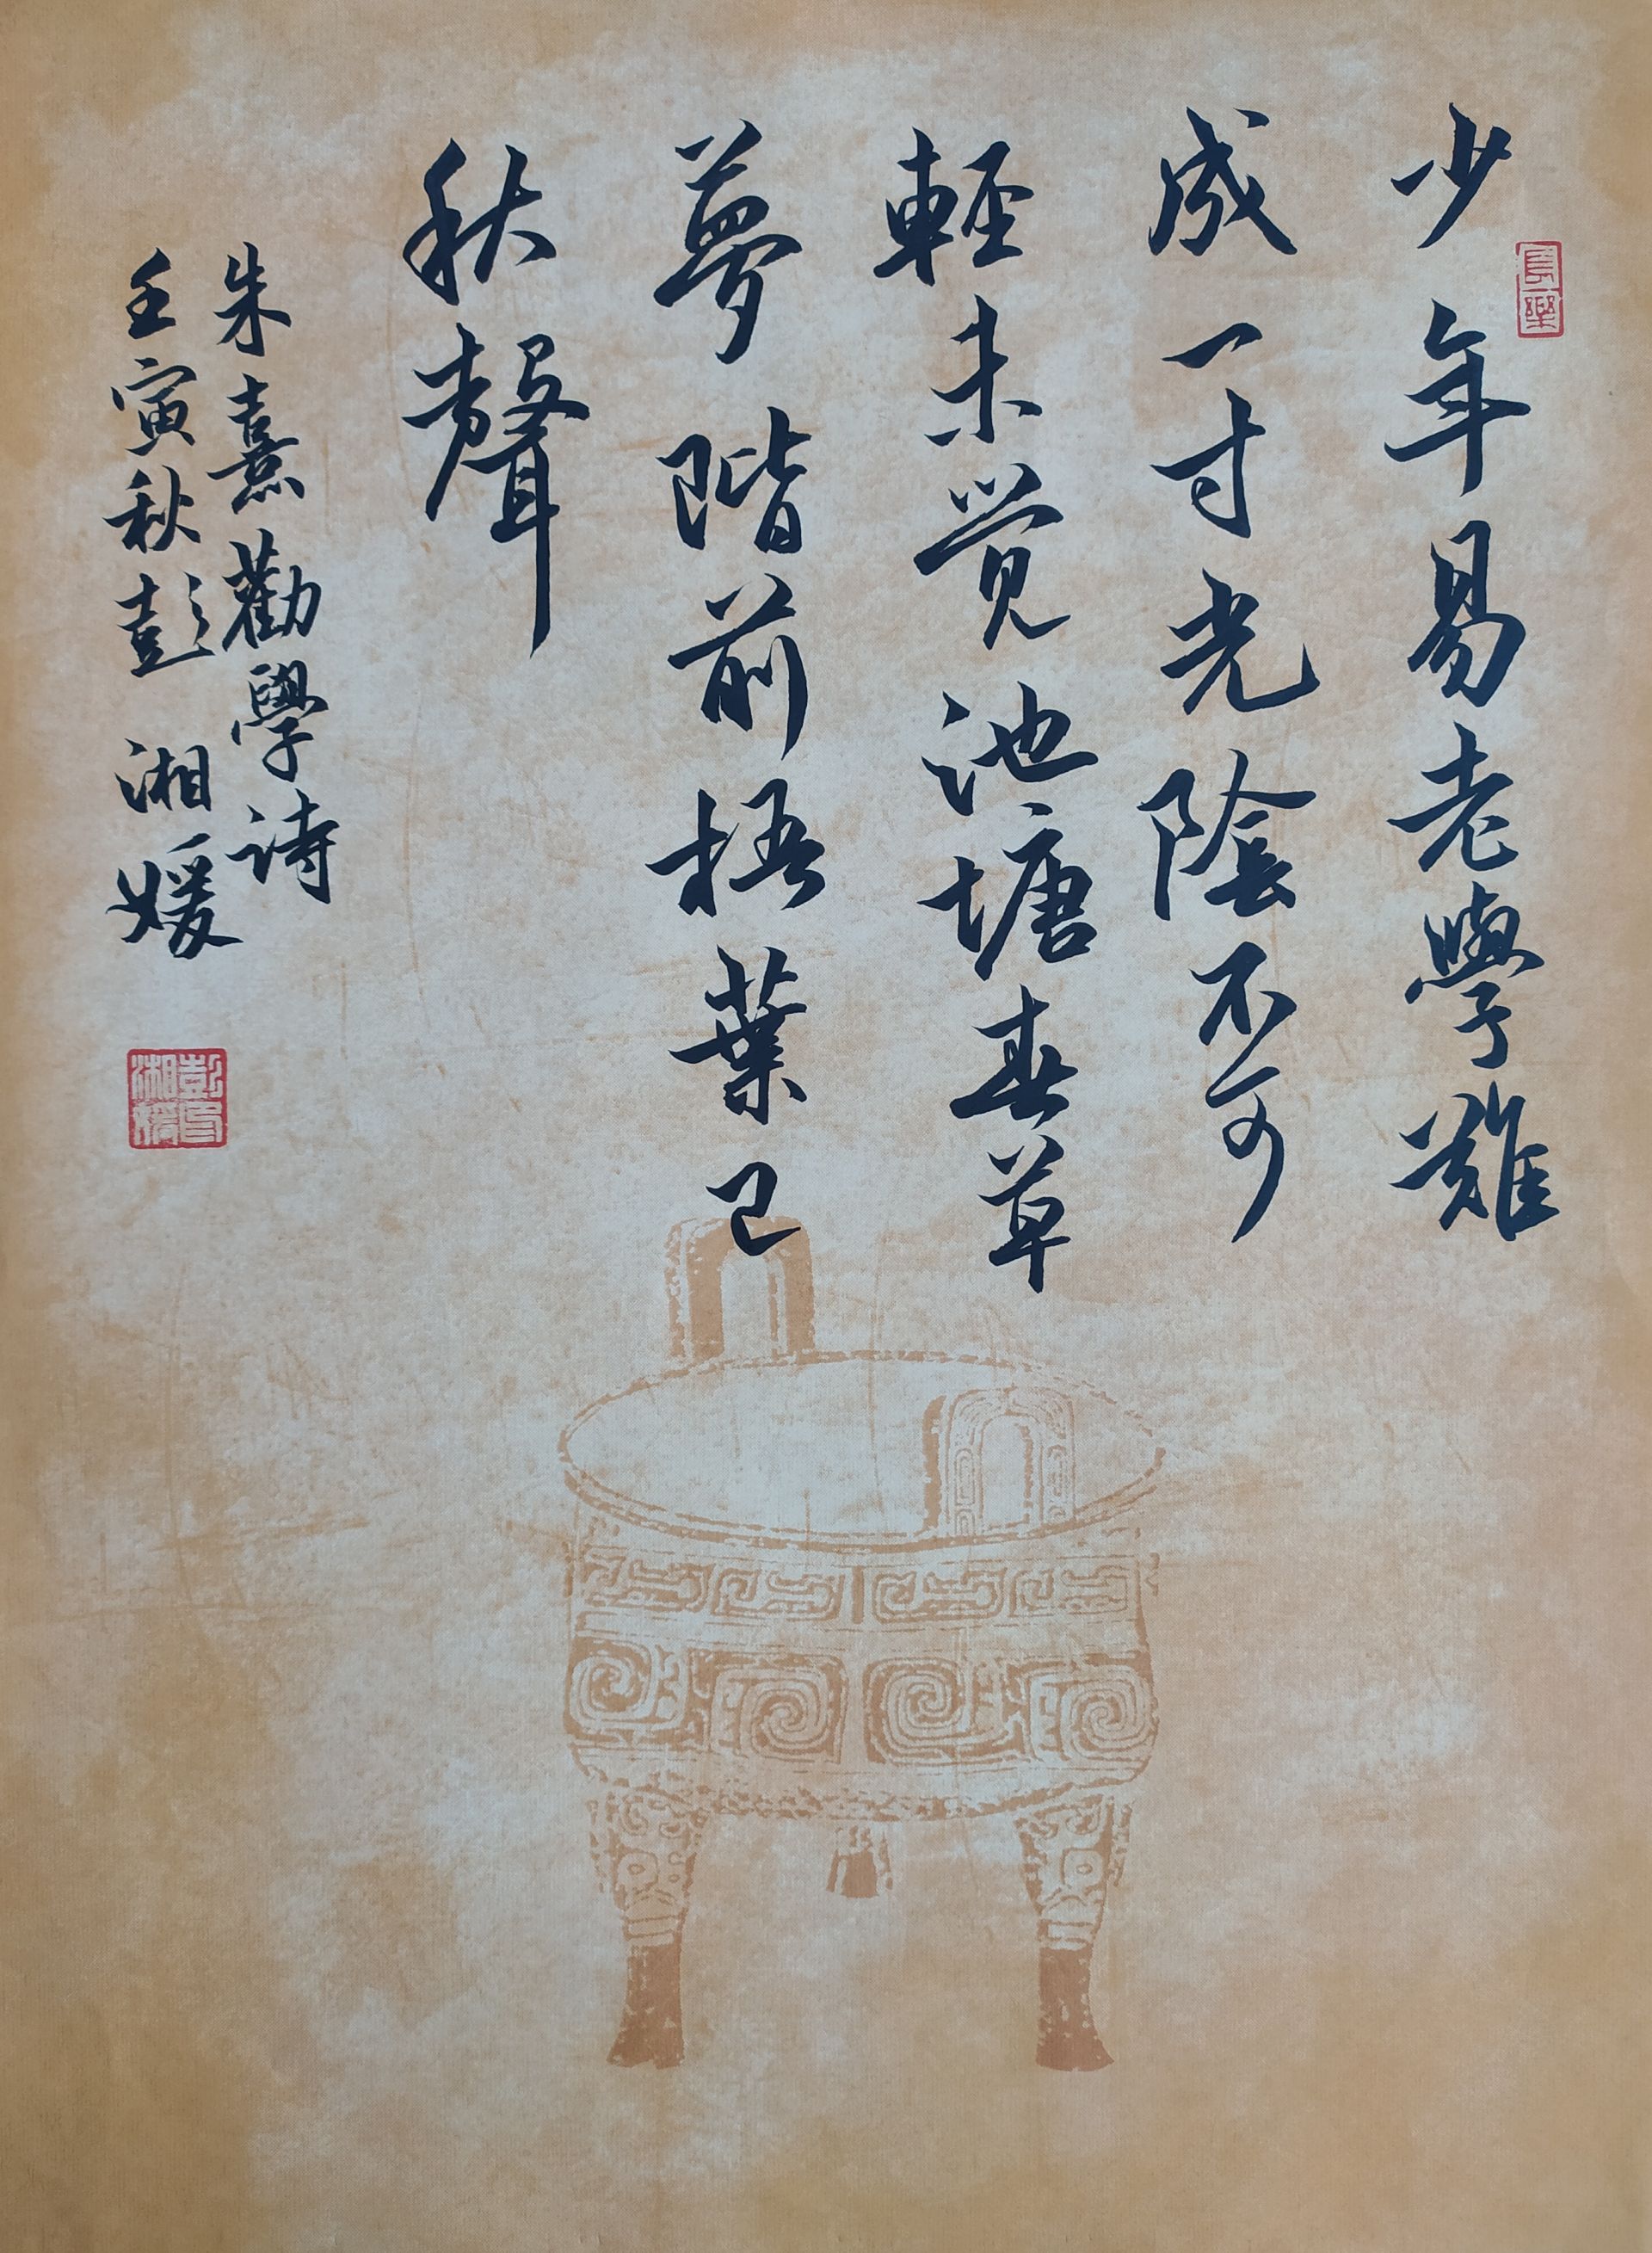 少年易老學難
成一寸光陰不可
輕未觉池塘春草
夢階前梧葉已
秋聲
朱熹勸學诗
壬寅秋彭湘媛
長樂
彭湘媛印